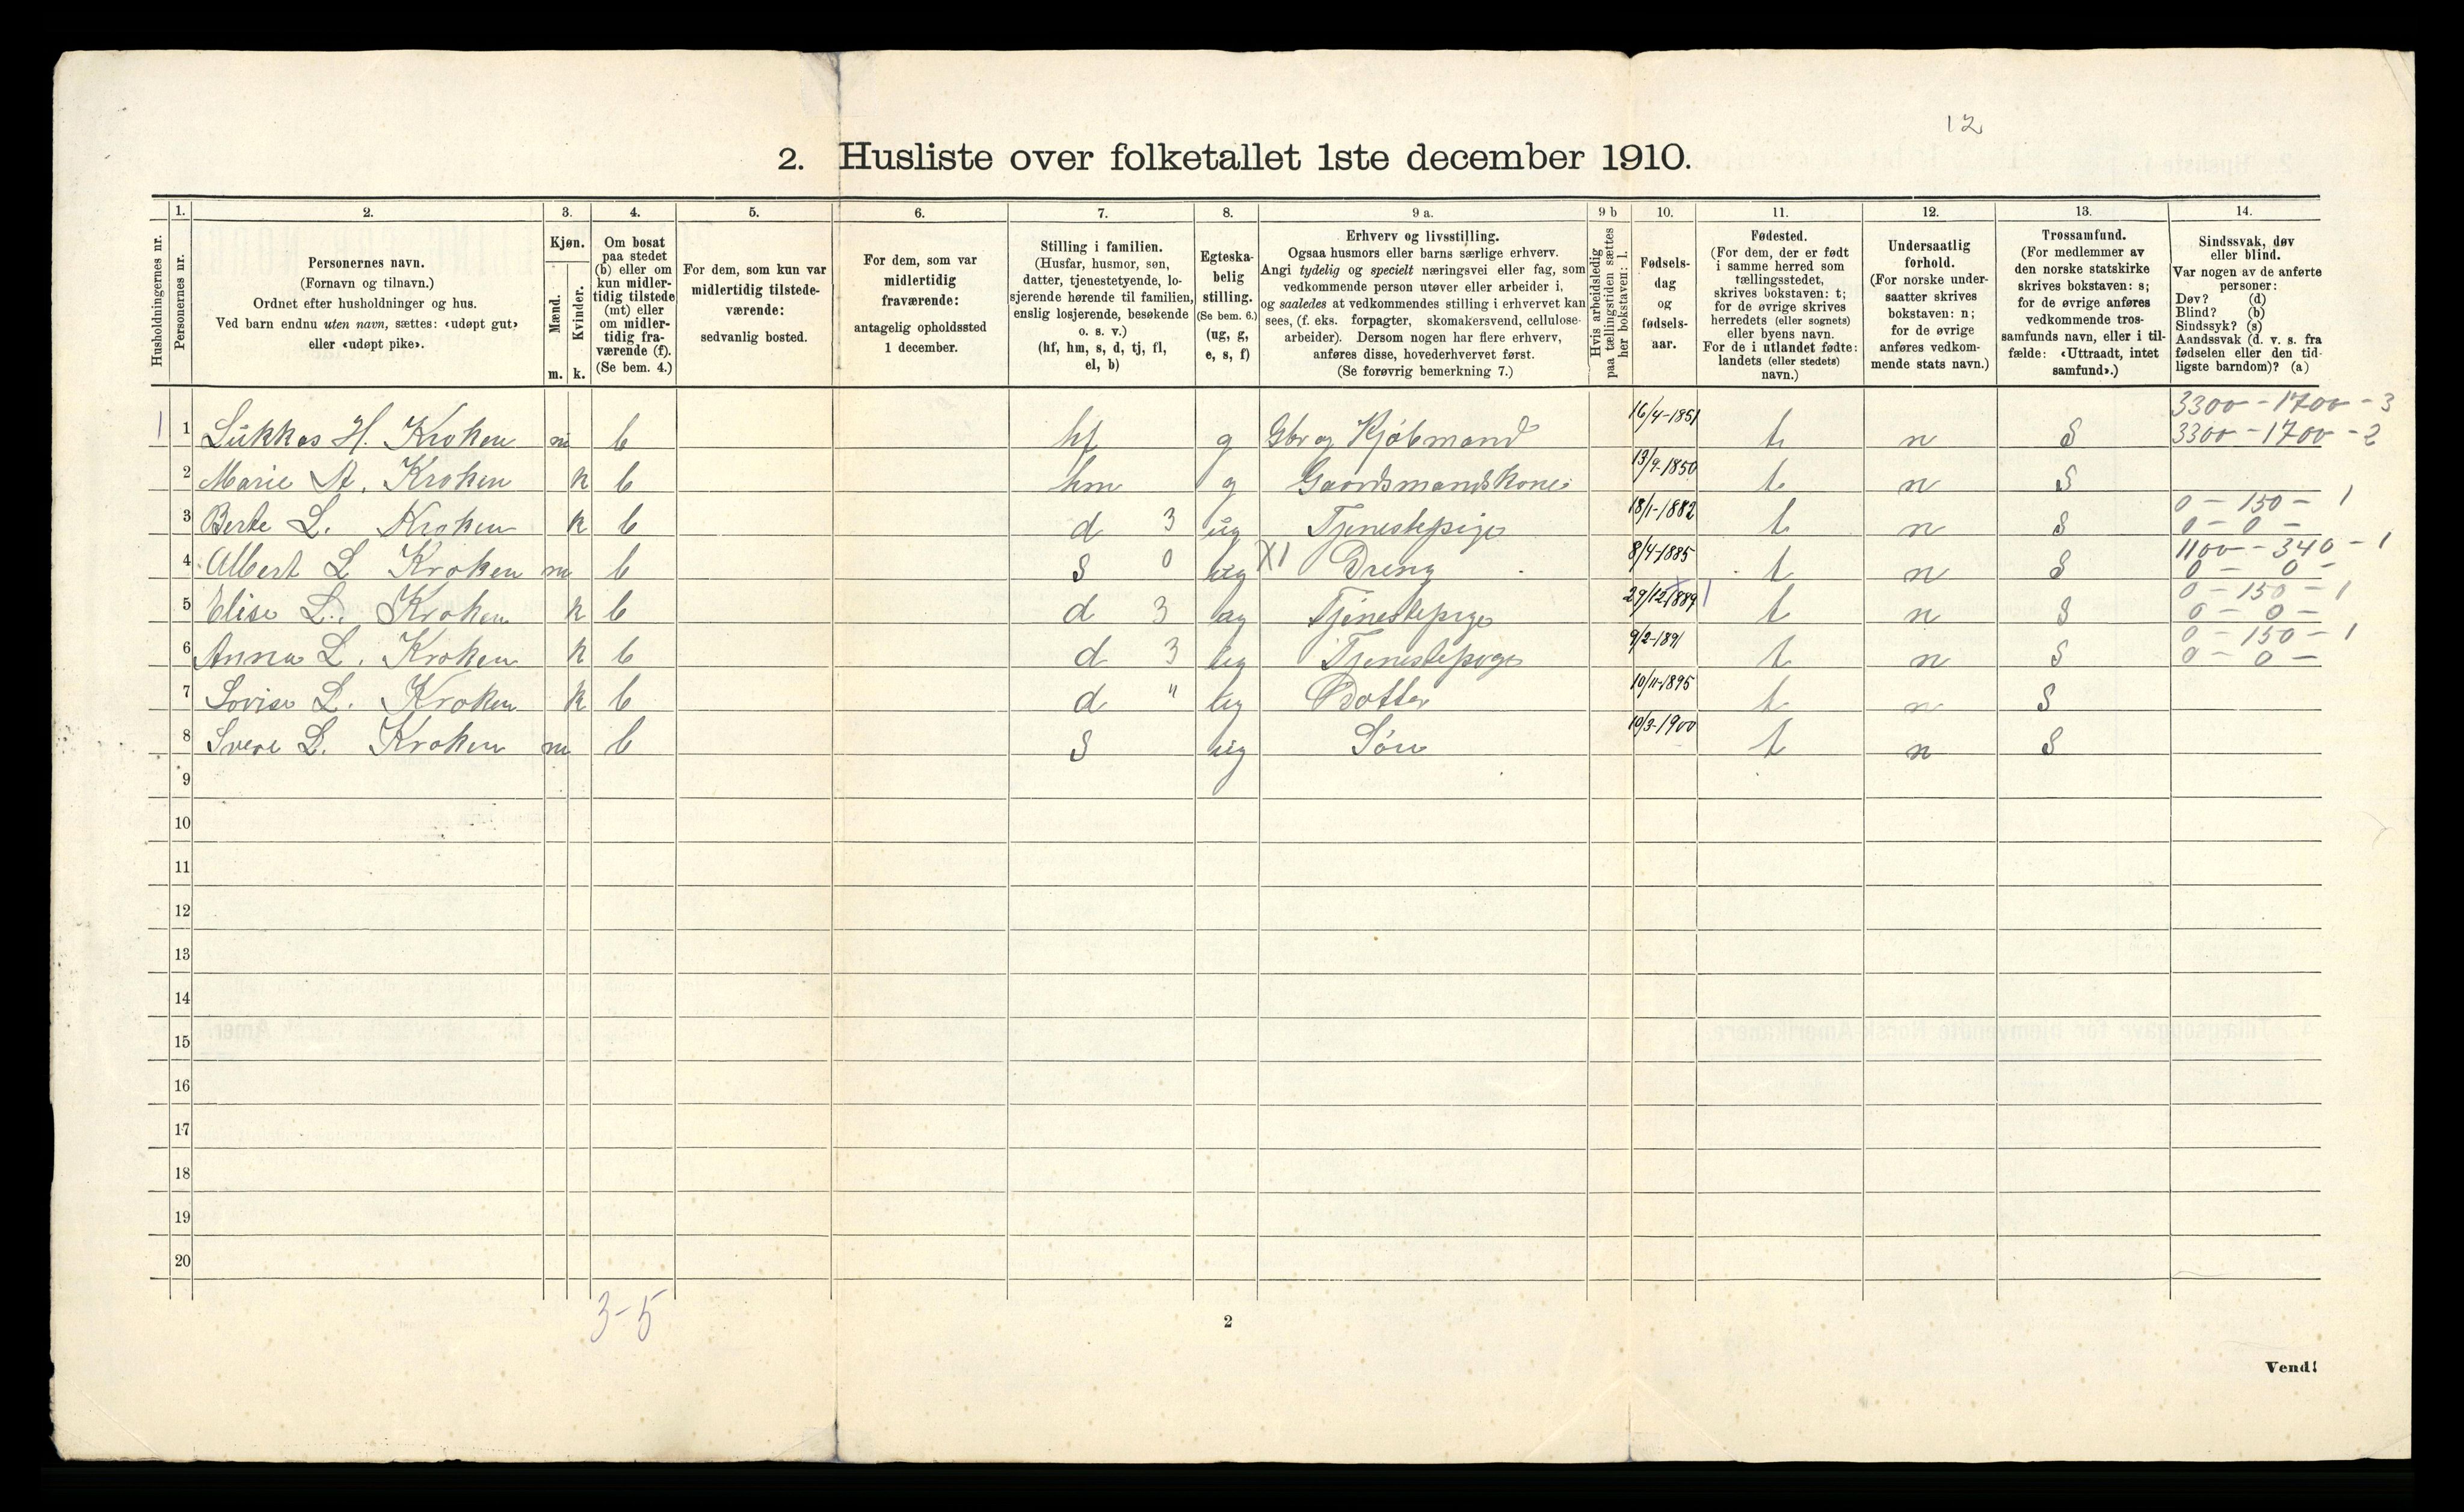 12
2. Husliste over folketallet 1ste december 1910.
Husholdningernes nr.
1.
Personernes nr.
2.
Personernes navn.
(Fornavn og tilnavn.)
Ordnet efter husholdninger og hus.
Ved barn endnu uten navn, sættes: «udøpt gut»
eller «udøpt pike».
3.
Kjøn.
Mænd.
Kvinder.
m. k.
4.
Om bosat
paa stedet
(b) eller om
kun midler-
tidig tilstede
(mt) eller
om midler-
tidig fra-
værende (f).
(Se bem. 4.)
5.
For dem, som kun var
midlertidig tilstede-
værende:
sedvanlig bosted.
6.
For dem, som var
midlertidig
fraværende:
antagelig opholdssted
1 december.
7.
Stilling i familien.
(Husfar, husmor, søn,
datter, tjenestetyende, lo-
sjerende hørende til familien,
enslig losjerende, besøkende
o. s. v.)
(hf, hm, s, d, tj, fl,
el, b)
8.
Egteska-
belig
stilling.
(Se bem. 6.)
(ug, g,
e, s, f)
9 a.
Erhverv og livsstilling.
Ogsaa husmors eller barns særlige erhverv.
Angi tydelig og specielt næringsvei eller fag, som
vedkommende person utøver eller arbeider i,
og saaledes at vedkommendes stilling i erhvervet kan
sees, (f. eks. forpagter, skomakersvend, cellulose-
arbeider). Dersom nogen har flere erhverv,
anføres disse, hovederhvervet først.
(Se forøvrig bemerkning 7.)
9 b
Hvis arbeidsledig
paa tællingstiden sættes
her bokstaven: l.
10.
Fødsels-
dag
og
fødsels-
aar.
11.
Fødested.
(For dem, der er født
i samme herred som
tællingsstedet,
skrives bokstaven: t;
for de øvrige skrives
herredets (eller sognets)
eller byens navn.
For de i utlandet fødte:
landets (eller stedets)
navn.)
12.
Undersaatlig
forhold.
(For norske under-
saatter skrives
bokstaven: n;
for de øvrige
anføres vedkom-
mende stats navn.)
13.
Trossamfund.
(For medlemmer av
den norske statskirke
skrives bokstaven: s;
for de øvrige anføres
vedkommende tros-
samfunds navn, eller i til-
fælde: «Uttraadt, intet
samfund».)
14.
Sindssvak, døv
eller blind.
Var nogen av de anførte
personer:
Døv? (d)
Blind? (b)
Sindssyk? (s)
Aandssvak (d. v. s. fra
fødselen eller den tid-
ligste barndom)? (a)
3300 - 1700 - 3
1 1 Lükkas H. Kroken m b hf g Gbr og Kjøbmand 16/4-1851 t n S 3300 - 1700 - 2
2 Marie A. Kroken k b hm g Gaardsmandskone 13/9-1850 t n S
0 - 150 - 1
3 Berte L. Kroken k b d 3 ug Tjenestepige 18/1-1882 t n S 0 - 0 -
1100 - 340 - 1
4 Albert L Kroken m b s 0 ug X1 Dreng 8/4-1885 t n S 0 - 0 -
0 - 150 - 1
5 Elise L. Kroken k b d 3 ug Tjenestepige 29/12 1889 t n S 0 - 0 -
0 - 150 - 1
6 Anna L. Kroken k b d 3 ug Tjenestepige 9/2-1891 t n S 0 - 0 -
7 Lovise L. Kroken k b d " ug Datter 10/11-1895 t n S
8 Svere L. Kroken m b s ug Søn 10/3-1900 t n S
9
10
11
12
13
14
15
16
17
18
19
20
3-5
2
Vend!